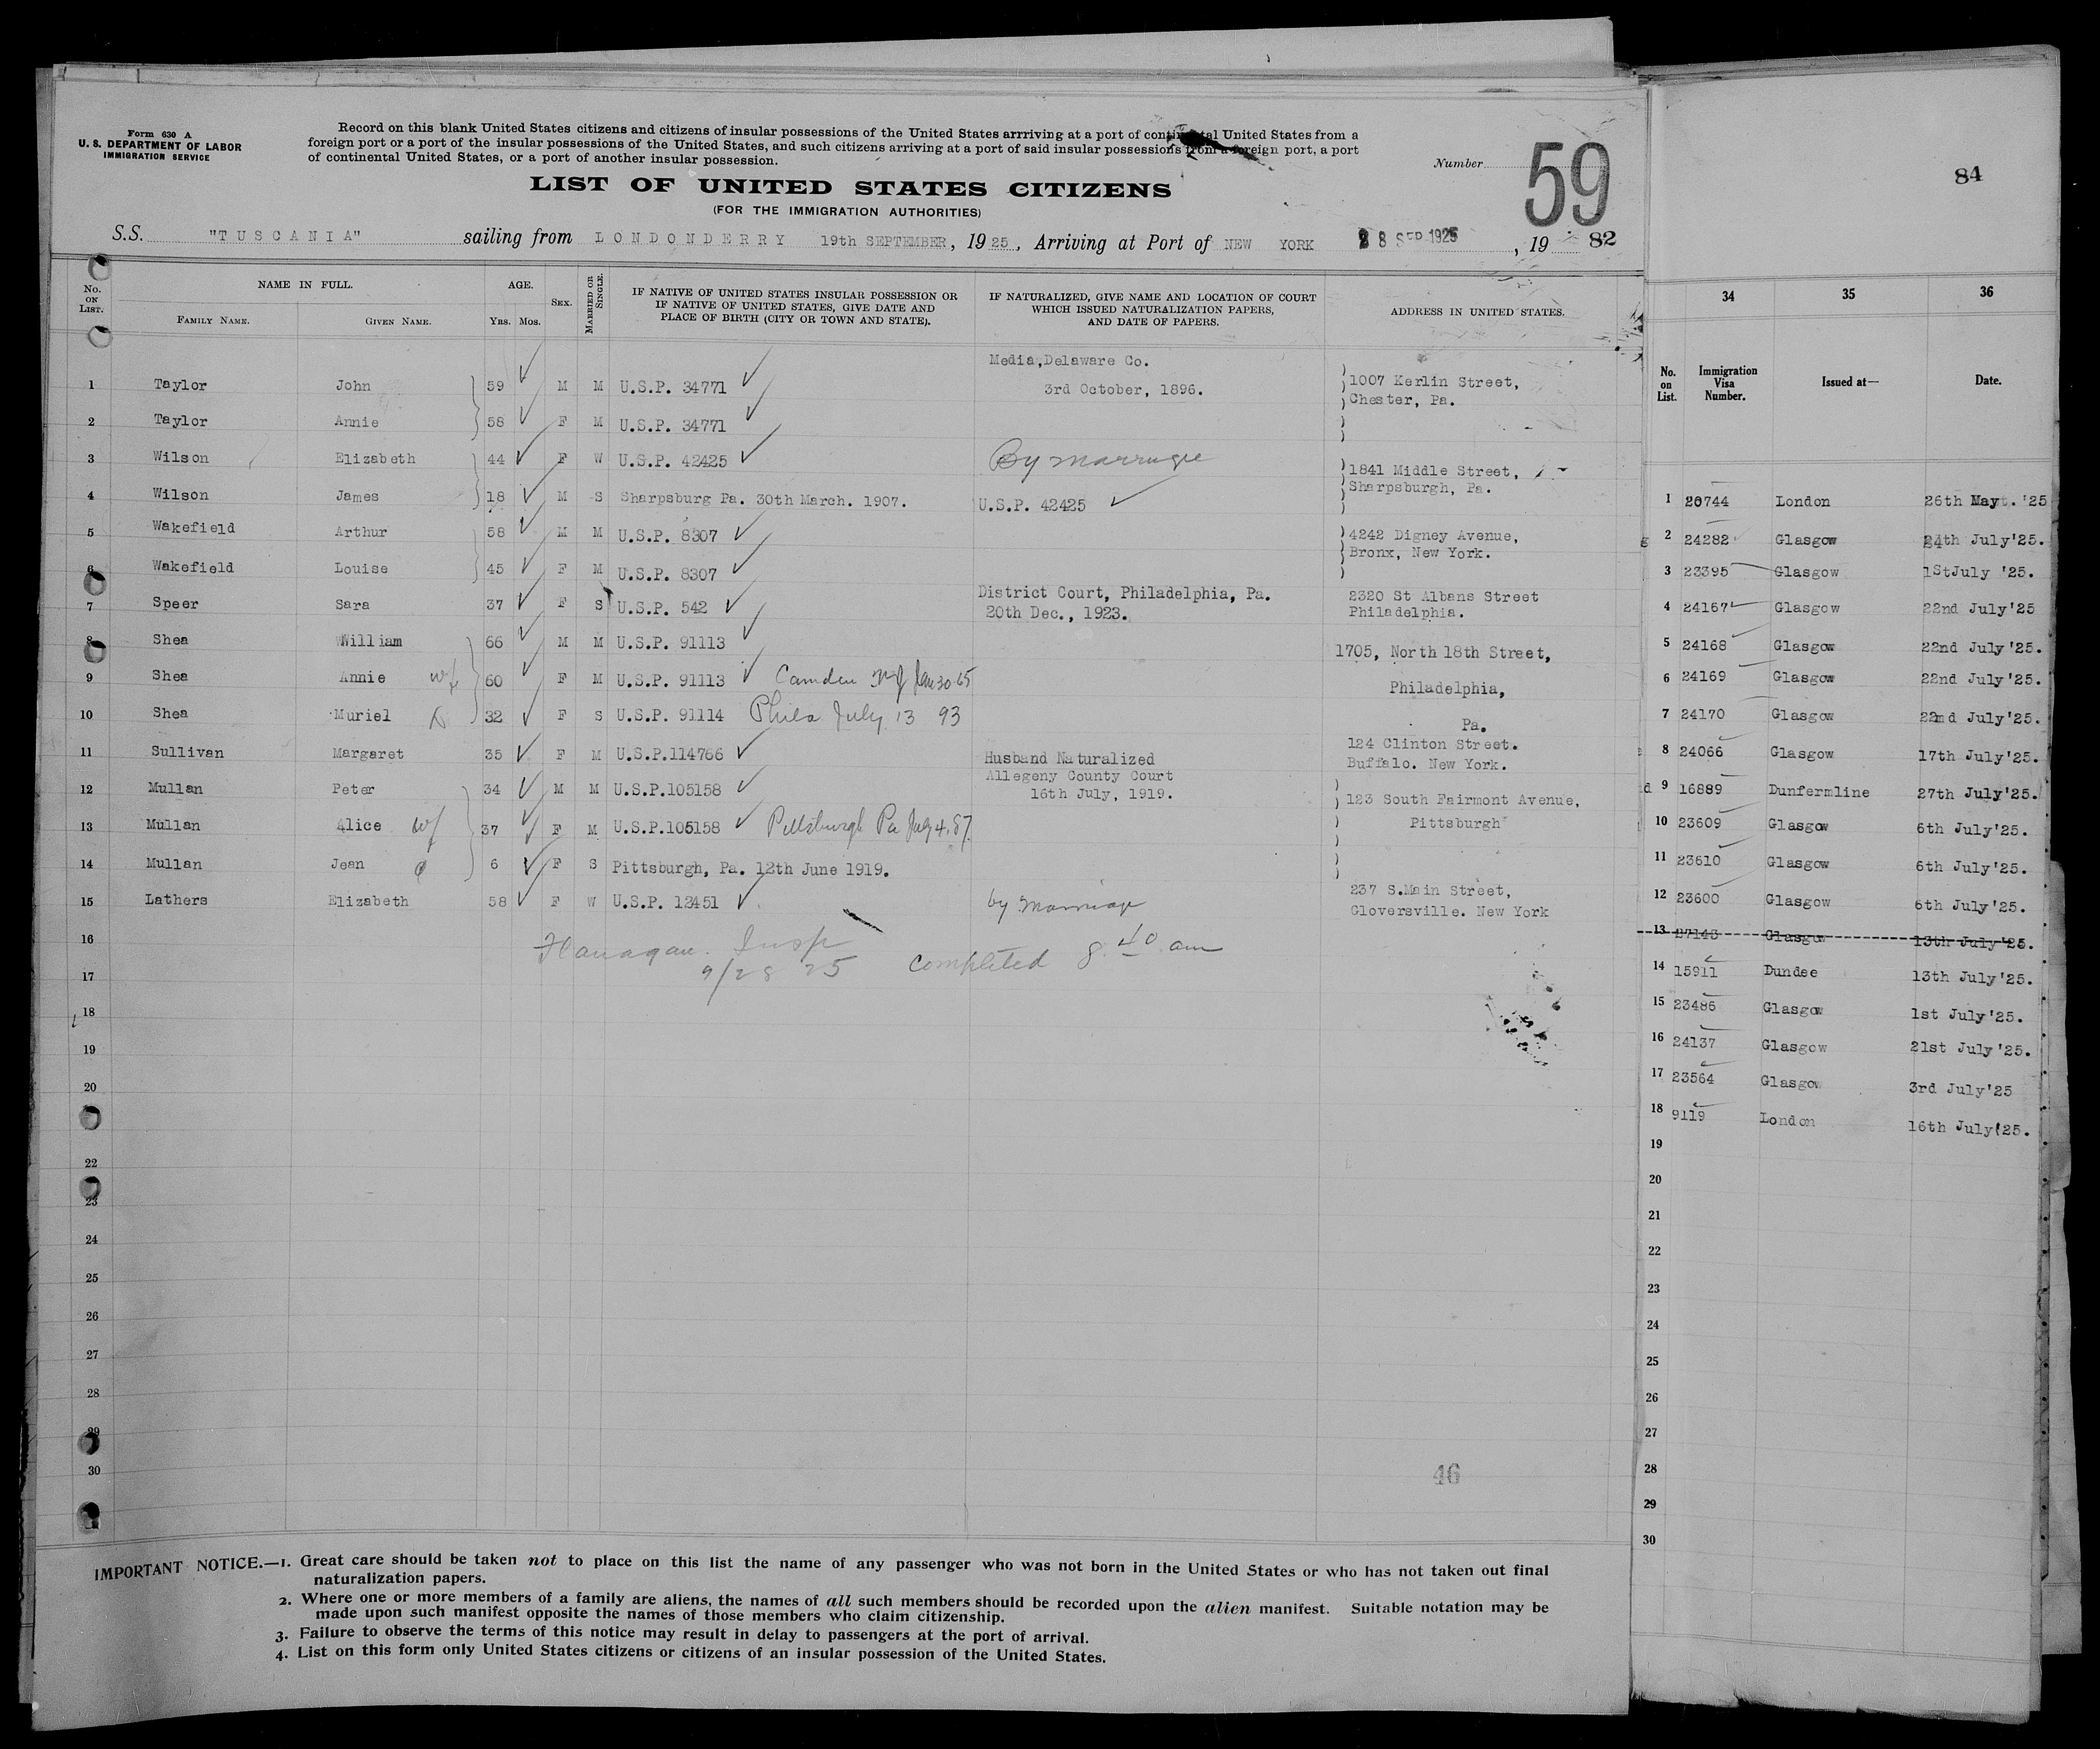 Form 630 A
U. S. DEPARTMENT OF LABOR
IMMIGRATION SERVICE
Record on this blank United States citizens and citizens of insular possessions of the United States arrriving at a port of continental United States from a
foreign port or a port of the insular possessions of the United States, and such citizens arriving at a port of said insular possessions from a foreign port, a port
of continental United States, or a port of another insular possession.
Number 59
LIST OF UNITED STATES CITIZENS
(FOR THE IMMIGRATION AUTHORITIES)
S.S. "TUSCANIA" sailing from LONDONDERRY 19th SEPTEMBER, 1925, Arriving at Port of NEW YORK 28 SEP 1925, 19 82
No. ON LIST. NAME IN FULL. AGE. SEX. MARRIED OR SINGLE. IF NATIVE OF UNITED STATES INSULAR POSSESSION OR IF NATIVE OF UNITED STATES, GIVE DATE AND PLACE OF BIRTH (CITY OR TOWN AND STATE). IF NATURALIZED, GIVE NAME AND LOCATION OF COURT WHICH ISSUED NATURALIZATION PAPERS, AND DATE OF PAPERS. ADDRESS IN UNITED STATES.
FAMILY NAME. GIVEN NAME. Yrs. Mos.
Media, Delaware Co.
1 Taylor John 59 M M U.S.P. 34771 3rd October, 1896. 1007 Kerlin Street,
Chester, Pa.
2 Taylor Annie 58 F M U.S.P. 34771
3 Wilson Elizabeth 44 F W U.S.P. 42425 By marriage 1841 Middle Street,
Sharpsburgh, Pa.
4 Wilson James 18 M S Sharpsburg Pa. 30th March. 1907. U.S.P. 42425
5 Wakefield Arthur 58 M M U.S.P. 8307 4242 Digney Avenue,
Bronx, New York.
6 Wakefield Louise 45 F M U.S.P. 8307
7 Speer Sara 37 F S U.S.P. 542 District Court, Philadelphia, Pa. 2320 St Albans Street
20th Dec., 1923. Philadelphia.
8 Shea William 66 M M U.S.P. 91113
1705, North 18th Street,
9 Shea Annie wf 60 F M U.S.P. 91113 Camden NJ Jan 30-65
Philadelphia,
10 Shea Muriel D 32 F S U.S.P. 91114 Phila July 13 93
Pa.
11 Sullivan Margaret 35 F M U.S.P.114766 Husband Naturalized 124 Clinton Street.
Buffalo. New York.
Allegeny County Court
12 Mullan Peter 34 M M U.S.P.105158 16th July, 1919.
123 South Fairmont Avenue,
13 Mullan Alice wf 37 F M U.S.P.105158 Pittsburgh Pa July 4. 87 Pittsburgh
14 Mullan Jean d 6 F S Pittsburgh, Pa. 12th June 1919.
15 Lathers Elizabeth 58 F W U.S.P. 12451 by marriage 237 S.Main Street,
Gloversville. New York
16 Flanagan. Insp
9/28 25 completed 8.40 am
17
18
19
20
22
23
24
25
26
27
28
29
30
46
IMPORTANT NOTICE.—1. Great care should be taken not to place on this list the name of any passenger who was not born in the United States or who has not taken out final
naturalization papers.
2. Where one or more members of a family are aliens, the names of all such members should be recorded upon the alien manifest. Suitable notation may be
made upon such manifest opposite the names of those members who claim citizenship.
3. Failure to observe the terms of this notice may result in delay to passengers at the port of arrival.
4. List on this form only United States citizens or citizens of an insular possession of the United States.
84
34 35 36
No. on List. Immigration Visa Number. Issued at— Date.
1 20744 London 26th May. '25
2 24282 Glasgow 24th July'25.
3 23395 Glasgow 1StJuly '25.
4 24167 Glasgow 22nd July'25
5 24168 Glasgow 22nd July'25.
6 24169 Glasgow 22nd July'25.
7 24170 Glasgow 22nd July'25.
8 24066 Glasgow 17th July'25.
9 16889 Dunfermline 27th July'25.
10 23609 Glasgow 6th July'25.
11 23610 Glasgow 6th July'25.
12 23600 Glasgow 6th July'25.
13 27143 Glasgow 13th July'25.
14 15911 Dundee 13th July'25.
15 23486 Glasgow 1st July'25.
16 24137 Glasgow 21st July'25.
17 23564 Glasgow 3rd July'25
18 9119 London 16th July'25.
19
20
21
22
23
24
25
26
27
28
29
30